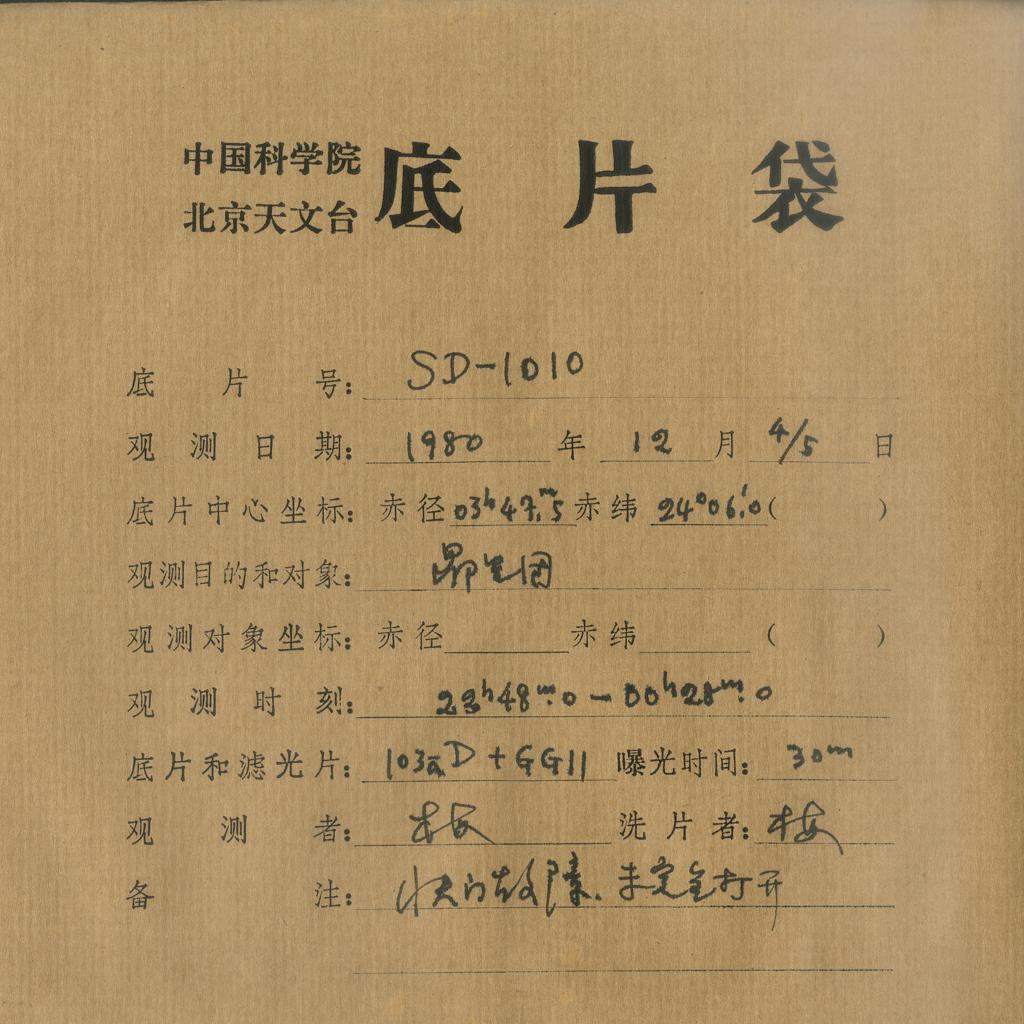 中国科学院
北京天文台
底片袋
底片号：SD-1010
观测日期：1980年12月4/5日
底片中心坐标：赤径03ʰ47ᵐ.5赤纬24°06′.0( )
观测目的和对象：昴星团
观测对象坐标：赤径 赤纬 ( )
观测时刻：23ʰ48ᵐ.0-00ʰ28ᵐ.0
底片和滤光片：103aD+GG11 曝光时间：30ᵐ
观测者：梅 洗片者：梅
备注：快门故障、未完全打开